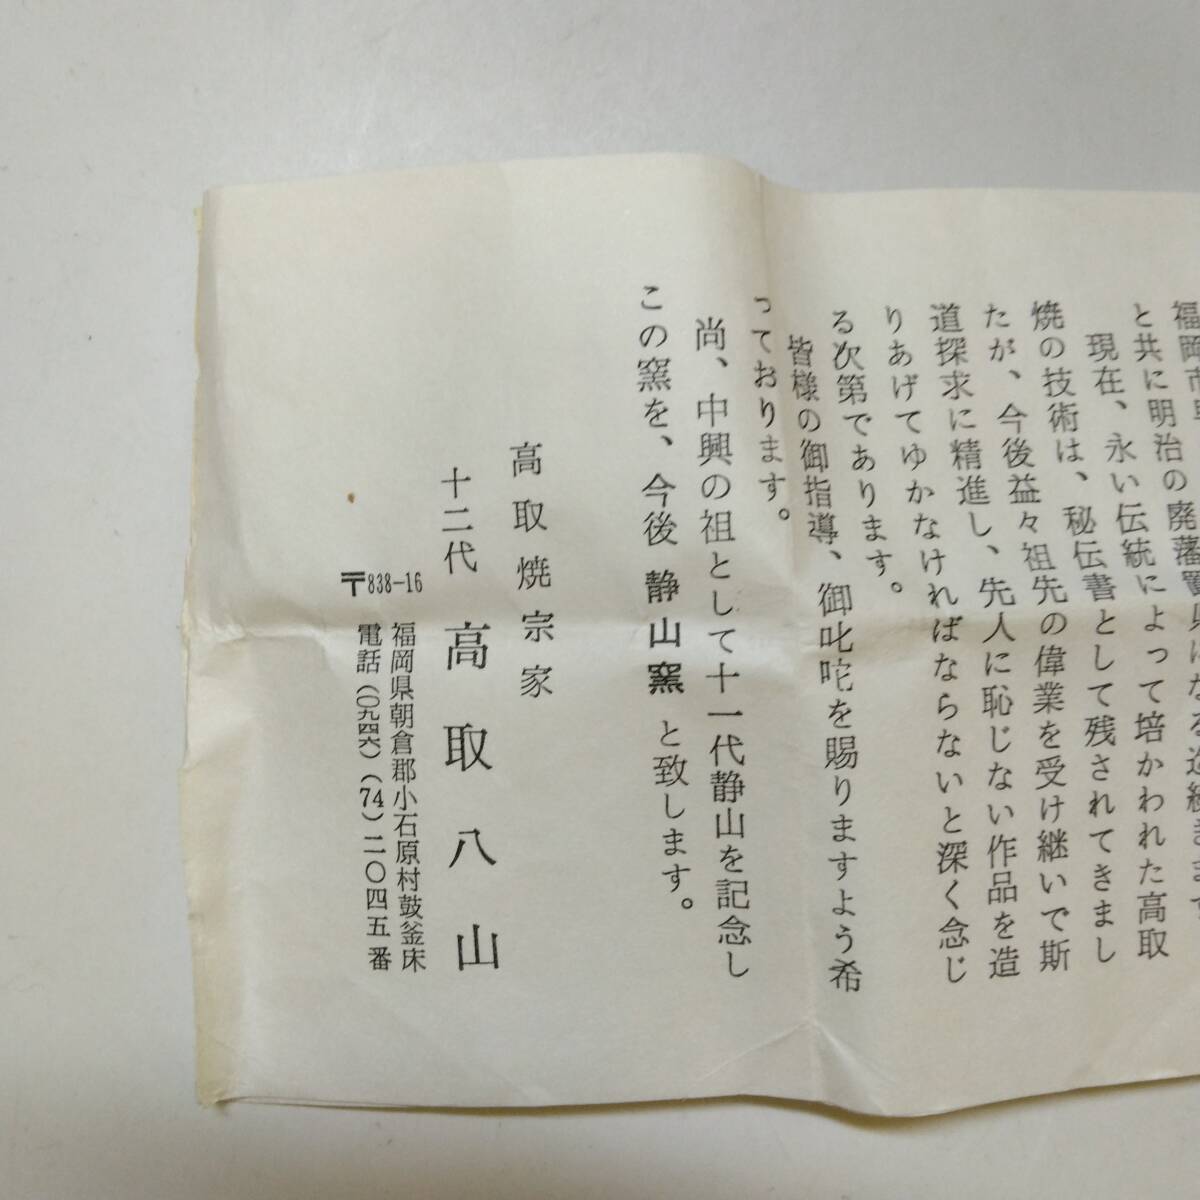 と共に明治の廃藩置県に
現在、永い伝統によって培かわれた高取
焼の技術は、秘伝書として残されてきまし
たが、今後益々祖先の偉業を受け継いで斯
道探求に精進し、先人に恥じない作品を造
りあげてゆかなければならないと深く念じ
る次第であります。
皆様の御指導、御叱咤を賜りますよう希
っております。
尚、中興の祖として十一代静山を記念し
この窯を、今後静山窯と致します。
高取焼宗家
十二代 高取八山
〒838-16 福岡県朝倉郡小石原村鼓釜床
電話(〇九四六)(74)二〇四五番